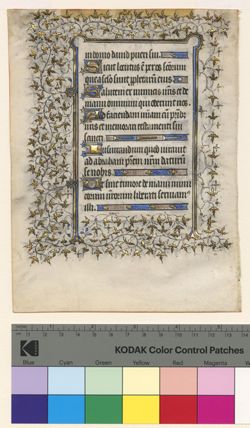 in domo david pueri sui.
Sicut locutus est per os sanctorum
qui a seculo sunt prophetarum eius
Salutem ex inimicis nostris et de
manu omnium qui oderunt nos.
Ad faciendam miam cum patribus
nostris et memorari testamenti sui
sancti
Iusiurandum quod iuravit
ad abraham patrem nostrum daturum
se nobis
Ut sine timore de manu inimi
corum nostrorum liberati serviam
illi
KODAK Color Control Patches
Blue Cyan Green Yellow Red Magenta